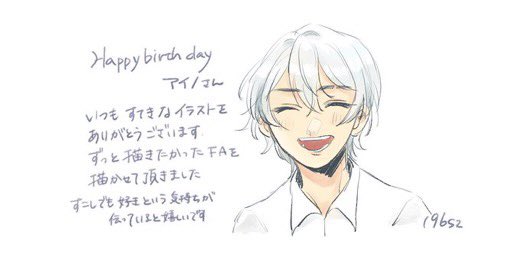 Happy birth day
アイノさん
いつも すてきな イラストを
ありがとうございます.
ずっと 描きたかった FAを
描かせて頂きました
すこしでも 好き という 気持ちが
伝っていると嬉しいです
19652